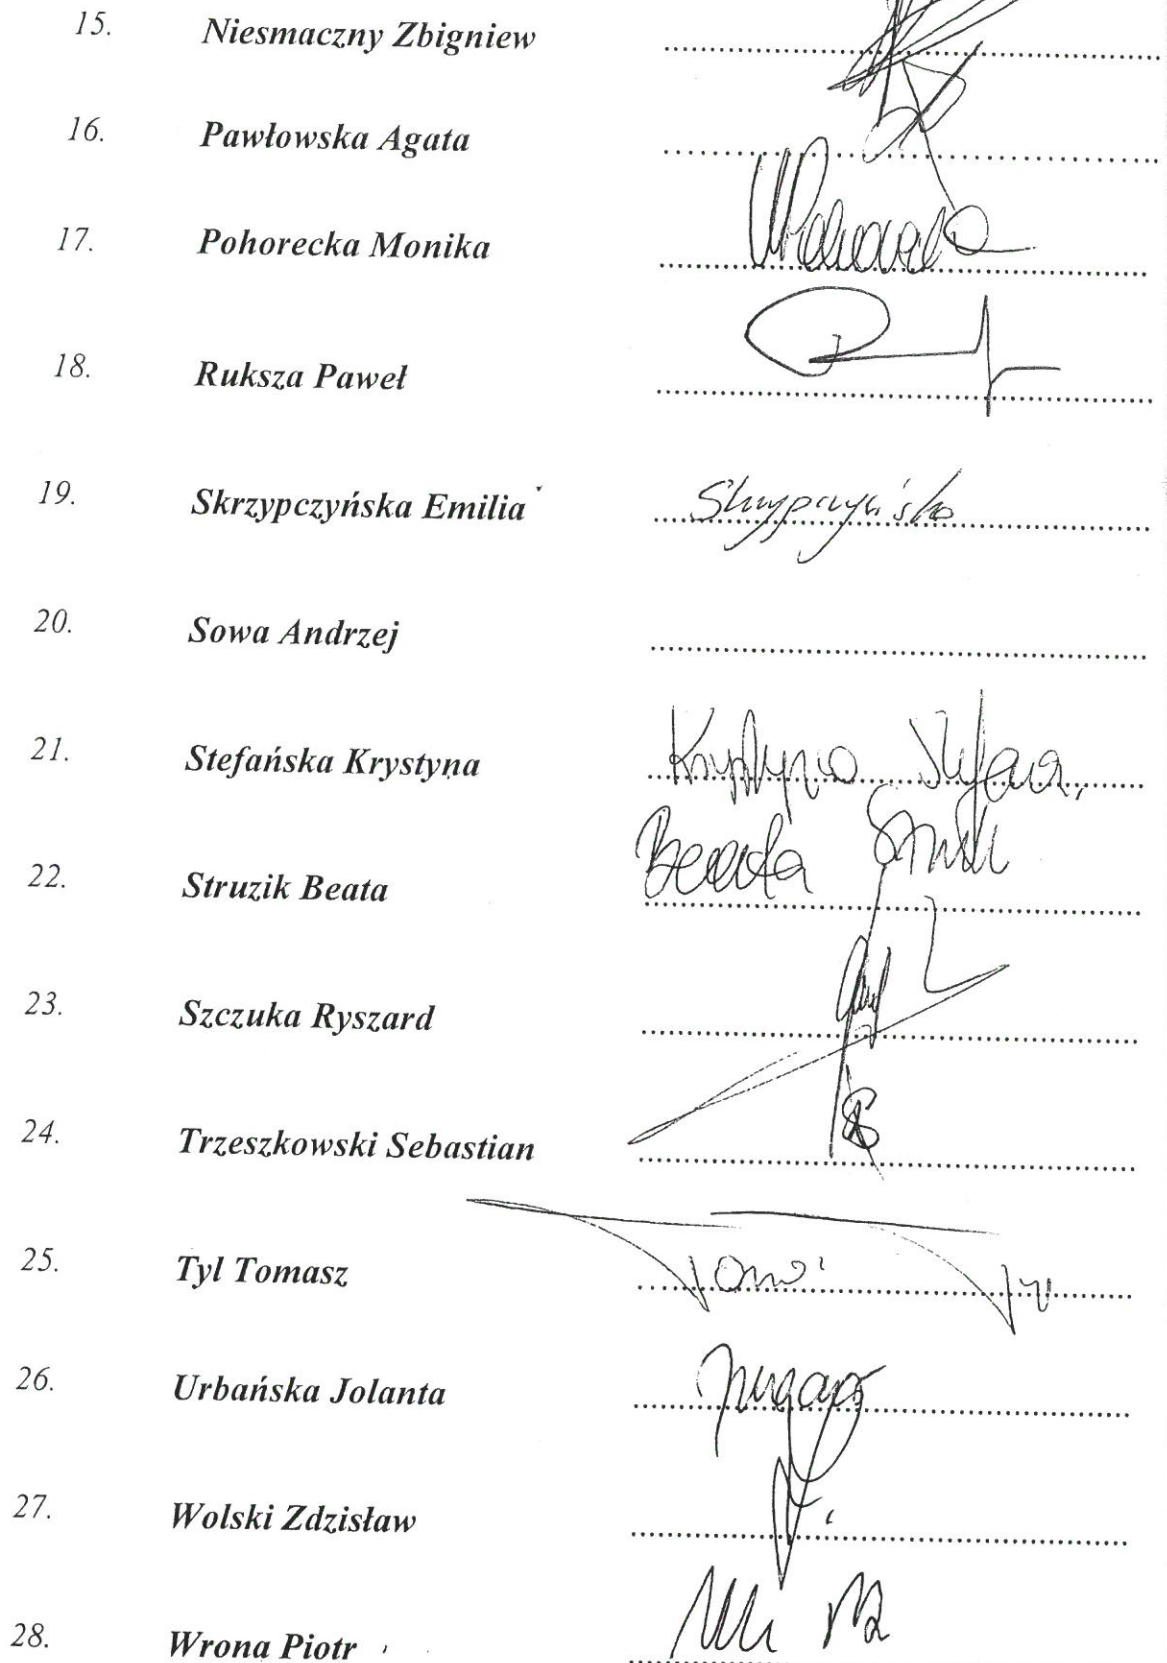 15. Niesmaczny Zbigniew
16. Pawłowska Agata
17. Pohorecka Monika
18. Ruksza Paweł
19. Skrzypczyńska Emilia Skrzypczyńska
20. Sowa Andrzej
21. Stefańska Krystyna Krystyna
22. Struzik Beata Beata Struzik
23. Szczuka Ryszard
24. Trzeszkowski Sebastian
25. Tyl Tomasz
26. Urbańska Jolanta
27. Wolski Zdzisław
28. Wrona Piotr